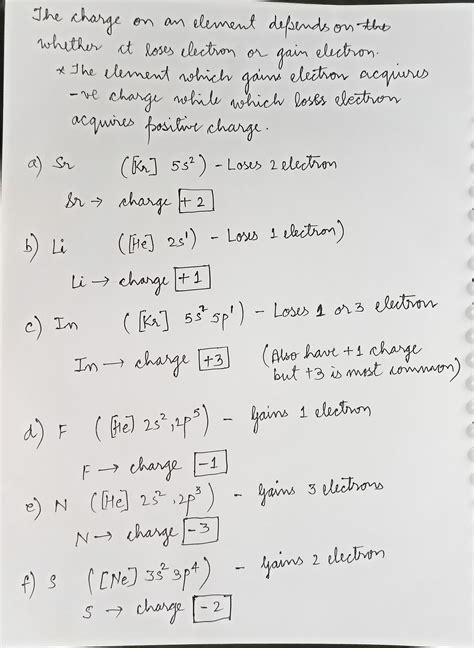 The charge on an element depends on the
whether it loses electron or gain electron.
* The element which gains electron acquires
-ve charge while which loses electron
acquires positive charge.
a) Sr ([Kr] 5s²) - Loses 2 electron
Sr → charge +2
b) Li ([He] 2s¹) - Loses 1 electron)
Li → charge +1
c) In ([Kr] 5s² 5p¹) - Loses 1 or 3 electron
In → charge +3 (Also have +1 charge
but +3 is most common)
d) F ([He] 2s², 2p⁵) - Gains 1 electron
F → charge -1
e) N ([He] 2s², 2p³) - Gains 3 electrons
N → charge -3
f) S ([Ne] 3s² 3p⁴) - Gains 2 electron
S → charge -2